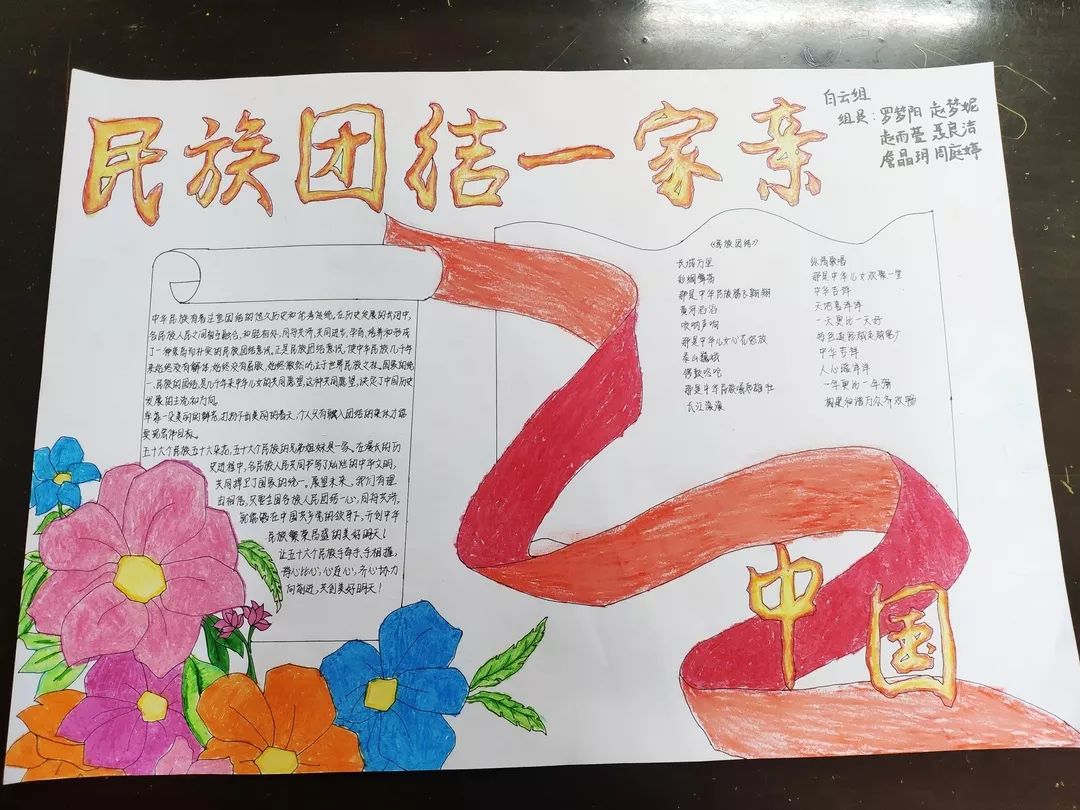 民族团结一家亲
白云组
组员：罗梦阳 赵梦妮
赵雨萱 聂良洁
詹晶玥 周庭婷
中华民族有着注重团结的悠久历史和优秀传统。在历史发展的长河中，
各民族人民之间相互融合，和睦相处，同舟共济，共同进步，孕育、培养和形成
了一种深厚而朴实的民族团结意识。正是民族团结意识，使中华民族几千年
来始终没有解体，始终没有屈服，始终傲然屹立于世界民族之林。国家的统
一、民族的团结，是几千年来中华儿女的共同愿望。这种共同愿望，决定了中国历史
发展的主流和方向。
单靠一朵美丽的鲜花，打扮不出美丽的春天，个人只有融入团结的集体才能
实现宏伟目标。
五十六个民族五十六朵花，五十六个民族的兄弟姐妹是一家。在漫长的历
史进程中，各民族人民共同书写了灿烂的中华文明，
共同捍卫了国家的统一。展望未来，我们有理
由相信，只要全国各族人民团结一心，同舟共济，
就能够在中国共产党的领导下，开创中华
民族繁荣昌盛的美好明天！
让五十六个民族手牵手、手相握，
将心比心，心连心，齐心协力
向前进，共创美好明天！
《民族团结》
长城万里
彩绸舞奔
那是中华民族腾飞翱翔
黄河滔滔
唢呐声响
那是中华儿女心花怒放
泰山巍峨
锣鼓咚咚
那是中华民族最为雄壮
长江滚滚
纵情歌唱
那是中华儿女欢聚一堂
中华吉祥
天地喜洋洋
一天更比一天好
中华吉祥
人心暖洋洋
一年更比一年强
构建和谐万众齐欢畅
中国